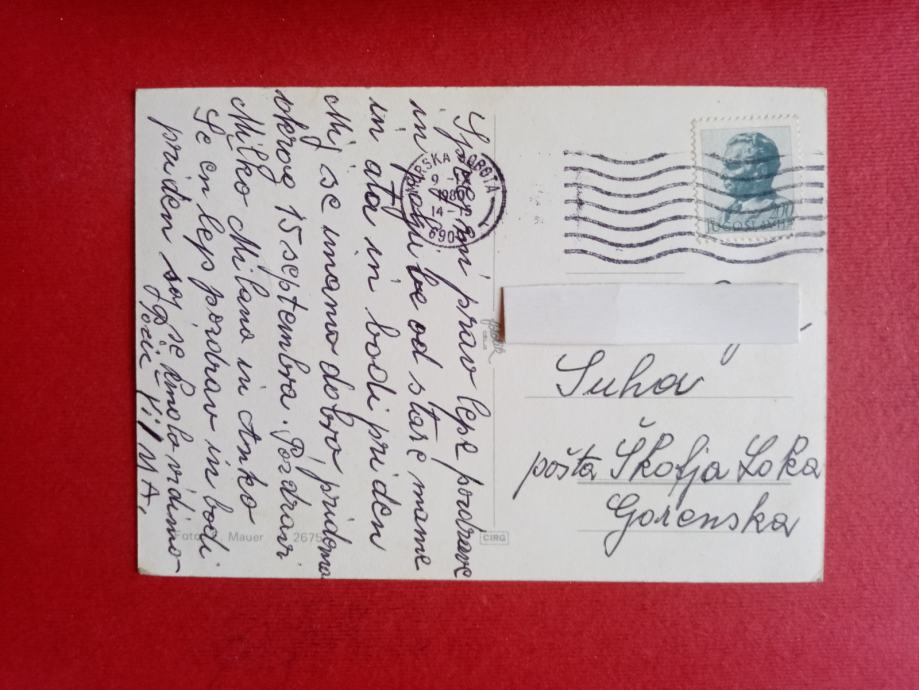 Sprejmi prav lepe pozdrave
in od stare mame
in ata in bodi priden
Mi se imamo dobro, pridemo
okrog 15 septembra. Pozdravi
Milko Milana in Anko
Še en lep pozdrav in bodi
priden saj se kmalu vidimo
MURSKA SOBOTA
9-
14-
690
JUGOSLAVIJA
Suha
pošta Škofja Loka
Gorenska
Foto Mauer 2675
CIRG